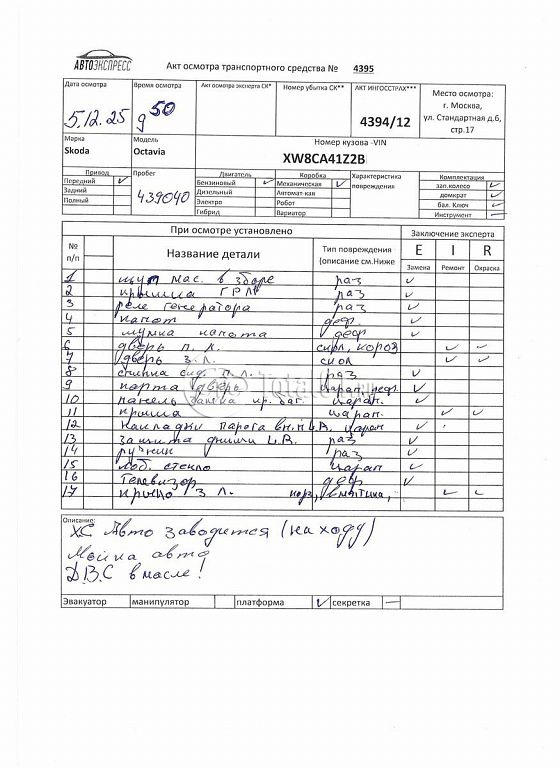 АВТОЭКСПРЕСС
Акт осмотра транспортного средства № 4395
Дата осмотра Время осмотра Акт осмотра эксперта СК* Номер убытка СК** АКТ ИНГОССТРАХ*** Место осмотра:
г. Москва,
ул. Стандартная д.6,
стр.17
5.12.25 9 50 4394/12
Марка Модель Номер кузова -VIN
Skoda Octavia XW8CA41Z2B
Привод Пробег Двигатель Коробка Характеристика повреждения Комплектация
Передний ✓ 439040 Бензиновый ✓ Механическая ✓ зап.колесо ✓
Задний Дизельный Автомат-кая домкрат ✓
Полный Электро Робот бал. Ключ ✓
Гибрид Вариатор Инструмент —
При осмотре установлено Заключение эксперта
№ п/п Название детали Тип повреждения (описание см.Ниже E I R
Замена Ремонт Окраска
1 щуп мас. в сборе раз ✓
2 крышка ГРМ раз ✓
3 реле генератора раз ✓
4 капот деф. ✓
5 шумка капота деф ✓
6 дверь п. л. скол, короз ✓ ✓
7 дверь з. л. скол ✓ ✓
8 спинка сид. п. л. раз ✓
9 дверь царап, деф. ✓
10 панель замка кр. баг. царап. ✓
11 крыша царап. ✓ ✓
12 накладки порога вн. царап ✓
13 защита днища раз ✓
14 раз ✓
15 лоб. стекло царап ✓
16 телевизор деф ✓
17 крыло з л. ✓ ✓
Описание:
ХС Авто заводится (на ходу)
Мойка авто
Д.В.С в масле!
Эвакуатор манипулятор платформа ✓ секретка —